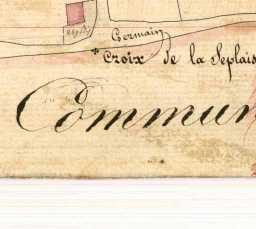 Germain
Croix de la Seplais
Commun